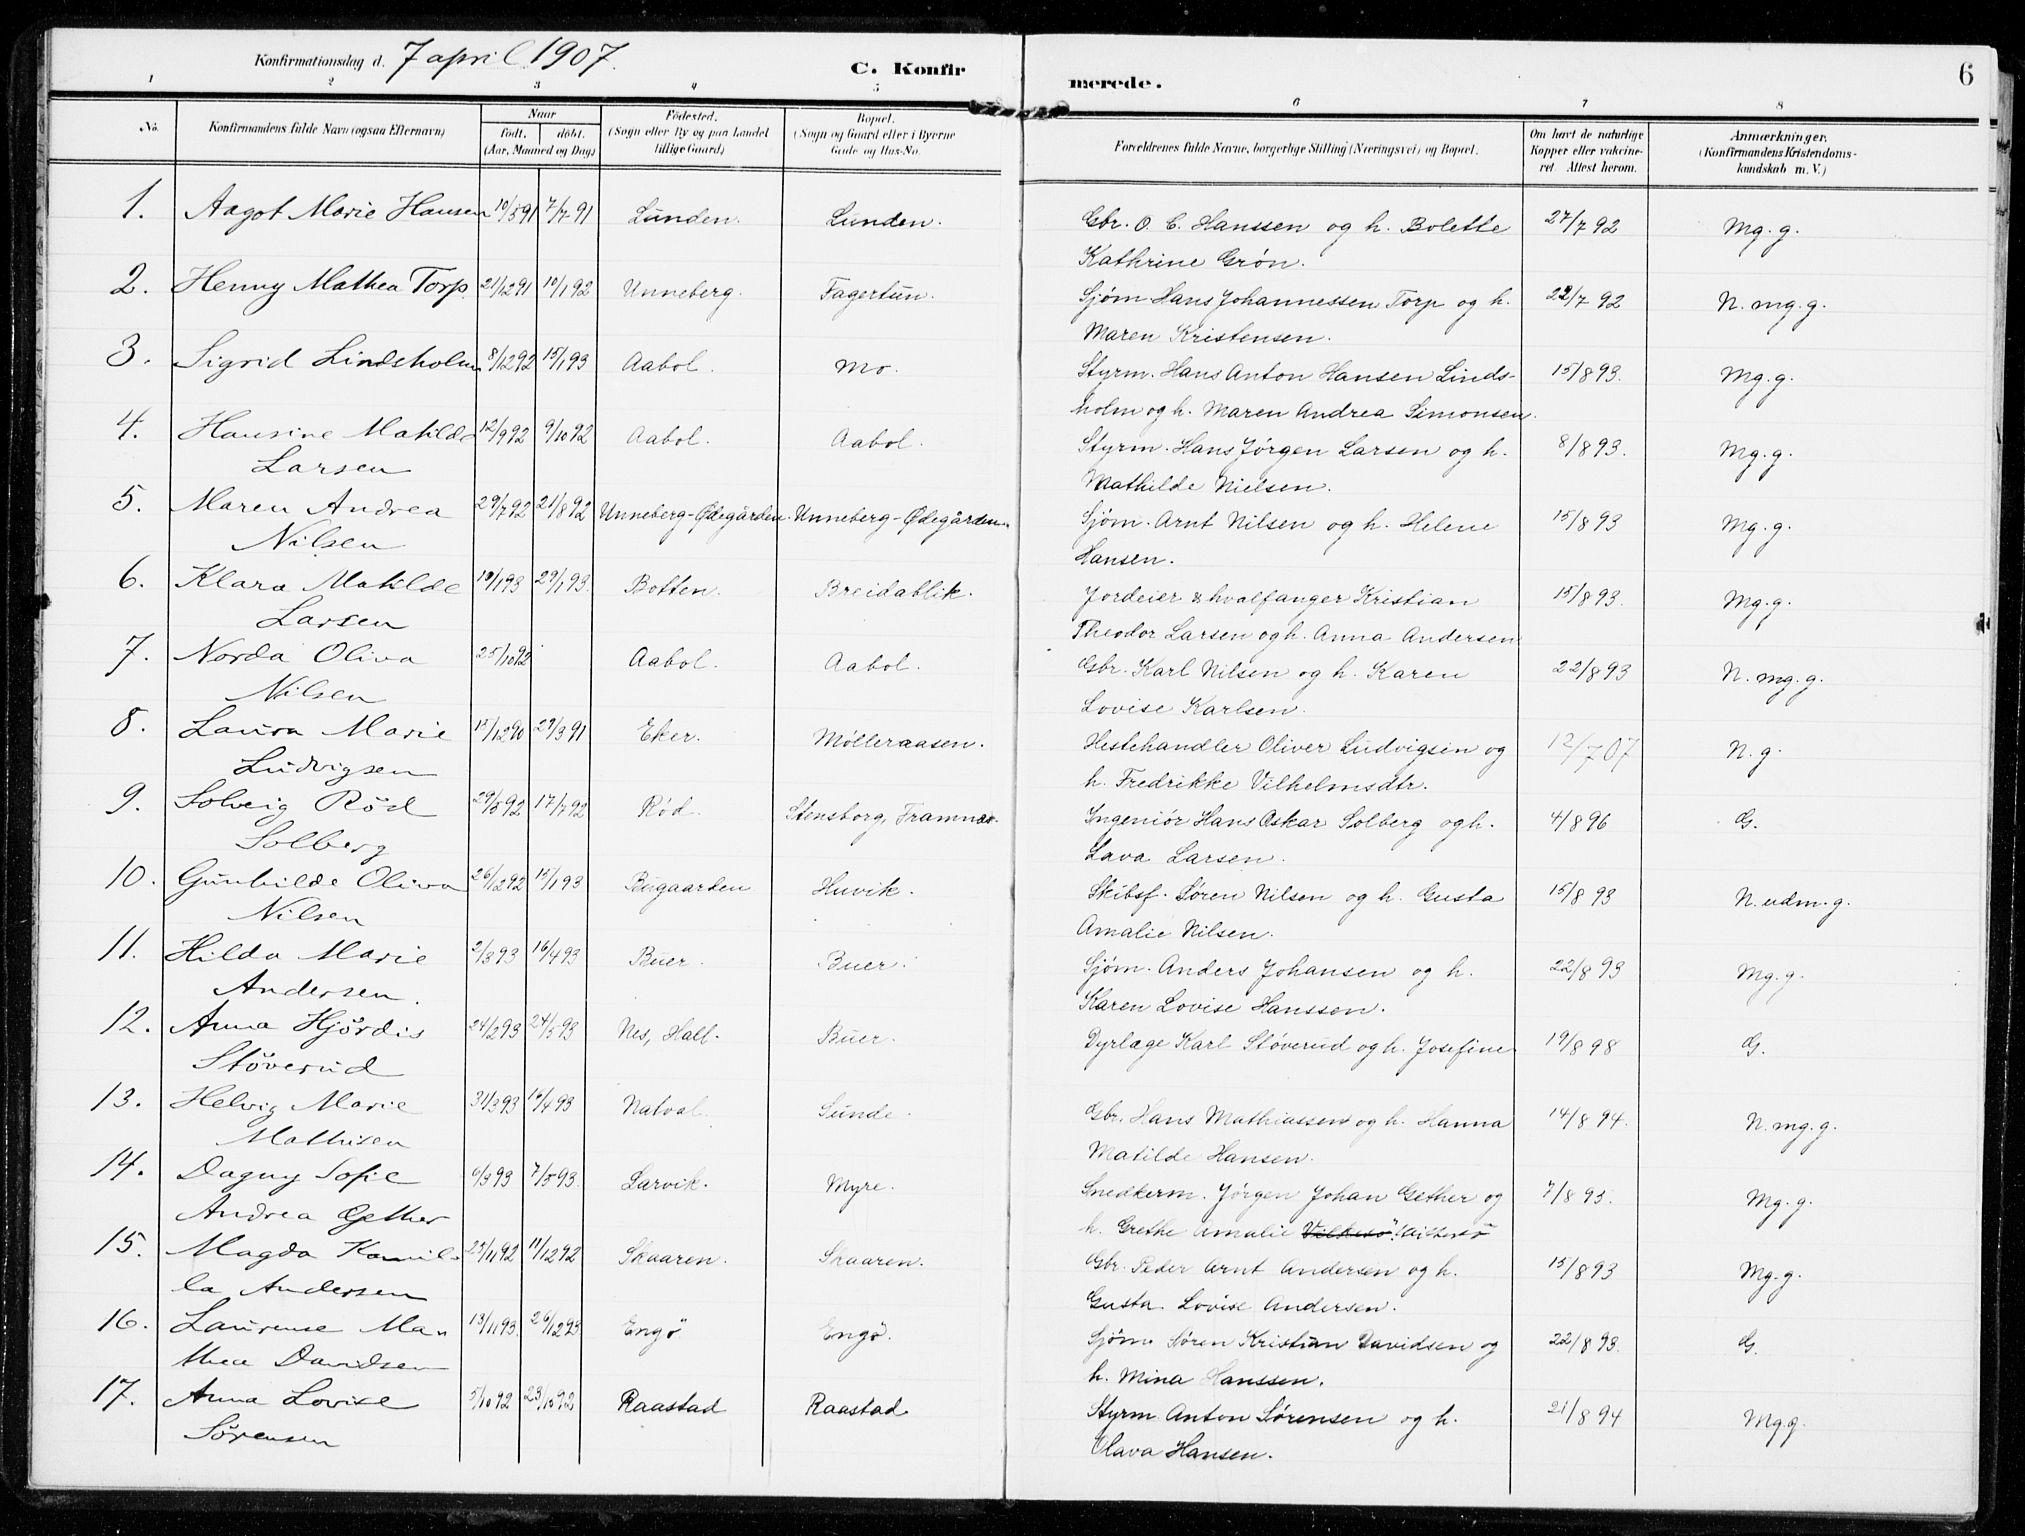 Konfirmationsdag d. 7 april 1907. C. Konfir merede. 6
1 2 3 4 5 6 7 8
No. Konfirmandens fulde Navn (ogsaa Efternavn) Naar født. døbt. (Aar, Maaned og Dag) Fødested. (Sogn eller By og paa Landet tillige Gaard) Bopæl. (Sogn og Gaard eller i Byerne Gade og Hus-No. Forældrenes fulde Navne, borgerlige Stilling (Næringsvei) og Bopæl. Om havt de naturlige Kopper eller vakcineret. Attest herom. Anmærkninger. (Konfirmandens Kristendomskundskab m. V.)
1. Aagot Marie Hansen 10/5 91 7/7 91 Lunden. Lunden. Gbr. O. C. Hanssen og h. Bolette 27/7 92 Mg. g.
Kathrine Grøn.
2. Henny Mathea Torp. 21/12 91 10/1 92 Unneberg. Fagertun. Sjøm. Hans Johannessen Torp og h. 22/7 92 N. mg. g.
Maren Kristensen.
3. Sigrid Lindsholm 8/12 92 15/1 93 Aabol. Mo. Styrm. Hans Anton Hansen Linds- 15/8 93. Mg. g.
holm og h. Maren Andrea Simonsen.
4. Hansine Matilde 12/9 92 9/10 92 Aabol. Aabol. Styrm. Hans Jørgen Larsen og h. 8/8 93. Mg. g.
Larsen Mathilde Nielsen.
5. Maren Andrea 29/7 92 21/8 92 Unneberg-Ødegården. Unneberg-Ødegården. Sjøm. Arnt Nilsen og h. Helene 15/8 93 Mg. g.
Nilsen Hansen.
6. Klara Matilde 10/1 93 29/1 93. Botten. Breidablik. Jordeier & hvalfanger Kristian 15/8 93. Mg. g.
Larsen Theodor Larsen og h. Anna Andersen
7. Norda Oliva 25/10 92 Aabol. Aabol. Gbr. Karl Nilsen og h. Karen 22/8 93 N. mg. g.
Nilsen Lovise Karlsen.
8. Laura Marie 15/12 90 29/3 91 Eker. Mølleraasen. Hestehandler Oliver Ludvigsen og 12/7 07 N. g.
Ludvigsen h. Fredrikke Vilhelmsdtr.
9. Solveig Röd 29/5 92 17/7 92 Rød. Stensborg, Framnæs. Ingeniør Hans Oskar Solberg og h. 4/8 96 G.
Solberg Lava Larsen.
10. Gunhilde Oliva 26/12 92 15/1 93 Bugaarden Huvik. Skibsf. Søren Nilsen og h. Gusta 15/8 93 N. udm. g.
Nilsen Amalie Nilsen.
11. Hilda Marie 2/3 93 16/4 93 Buer. Buer. Sjøm. Anders Johansen og h. 22/8 93 Mg. g.
Andersen. Karen Lovise Hanssen.
12. Anna Hjördis 24/2 93 24/5 93 Nes, Hall. Buer. Dyrlæge Karl Støverud og h. Josefine 19/8 98 G.
Stöverud
13. Helvig Marie 31/3 93 16/4 93 Natval. Sunde. Gbr. Hans Mathiassen og h. Hanna 14/8 94. N. mg. g.
Mathisen Matilde Hansen.
14. Dagny Sofie 6/3 93 7/5 93. Larvik. Myre. Snedkerm. Jørgen Johan Gether og 7/8 95. Mg. g.
Andrea Gether h. Grethe Amalie
15. Magda Kamil- 25/11 92 11/12 92 Skaaren. Skaaren. Gbr. Peder Arnt Andersen og h. 15/8 93 Mg. g.
la Andersen Gusta Lovise Andersen.
16. Laurense Ma- 13/11 93. 26/12 93 Engö Engø. Sjøm. Søren Kristian Davidsen og 22/8 93. G.
thea Davidsen h. Mina Hanssen.
17. Anna Lovise 5/10 92 23/10 92 Raastad Raastad. Styrm. Anton Sørensen og h. 21/8 94 Mg. g.
Sörensen Olava Hansen.